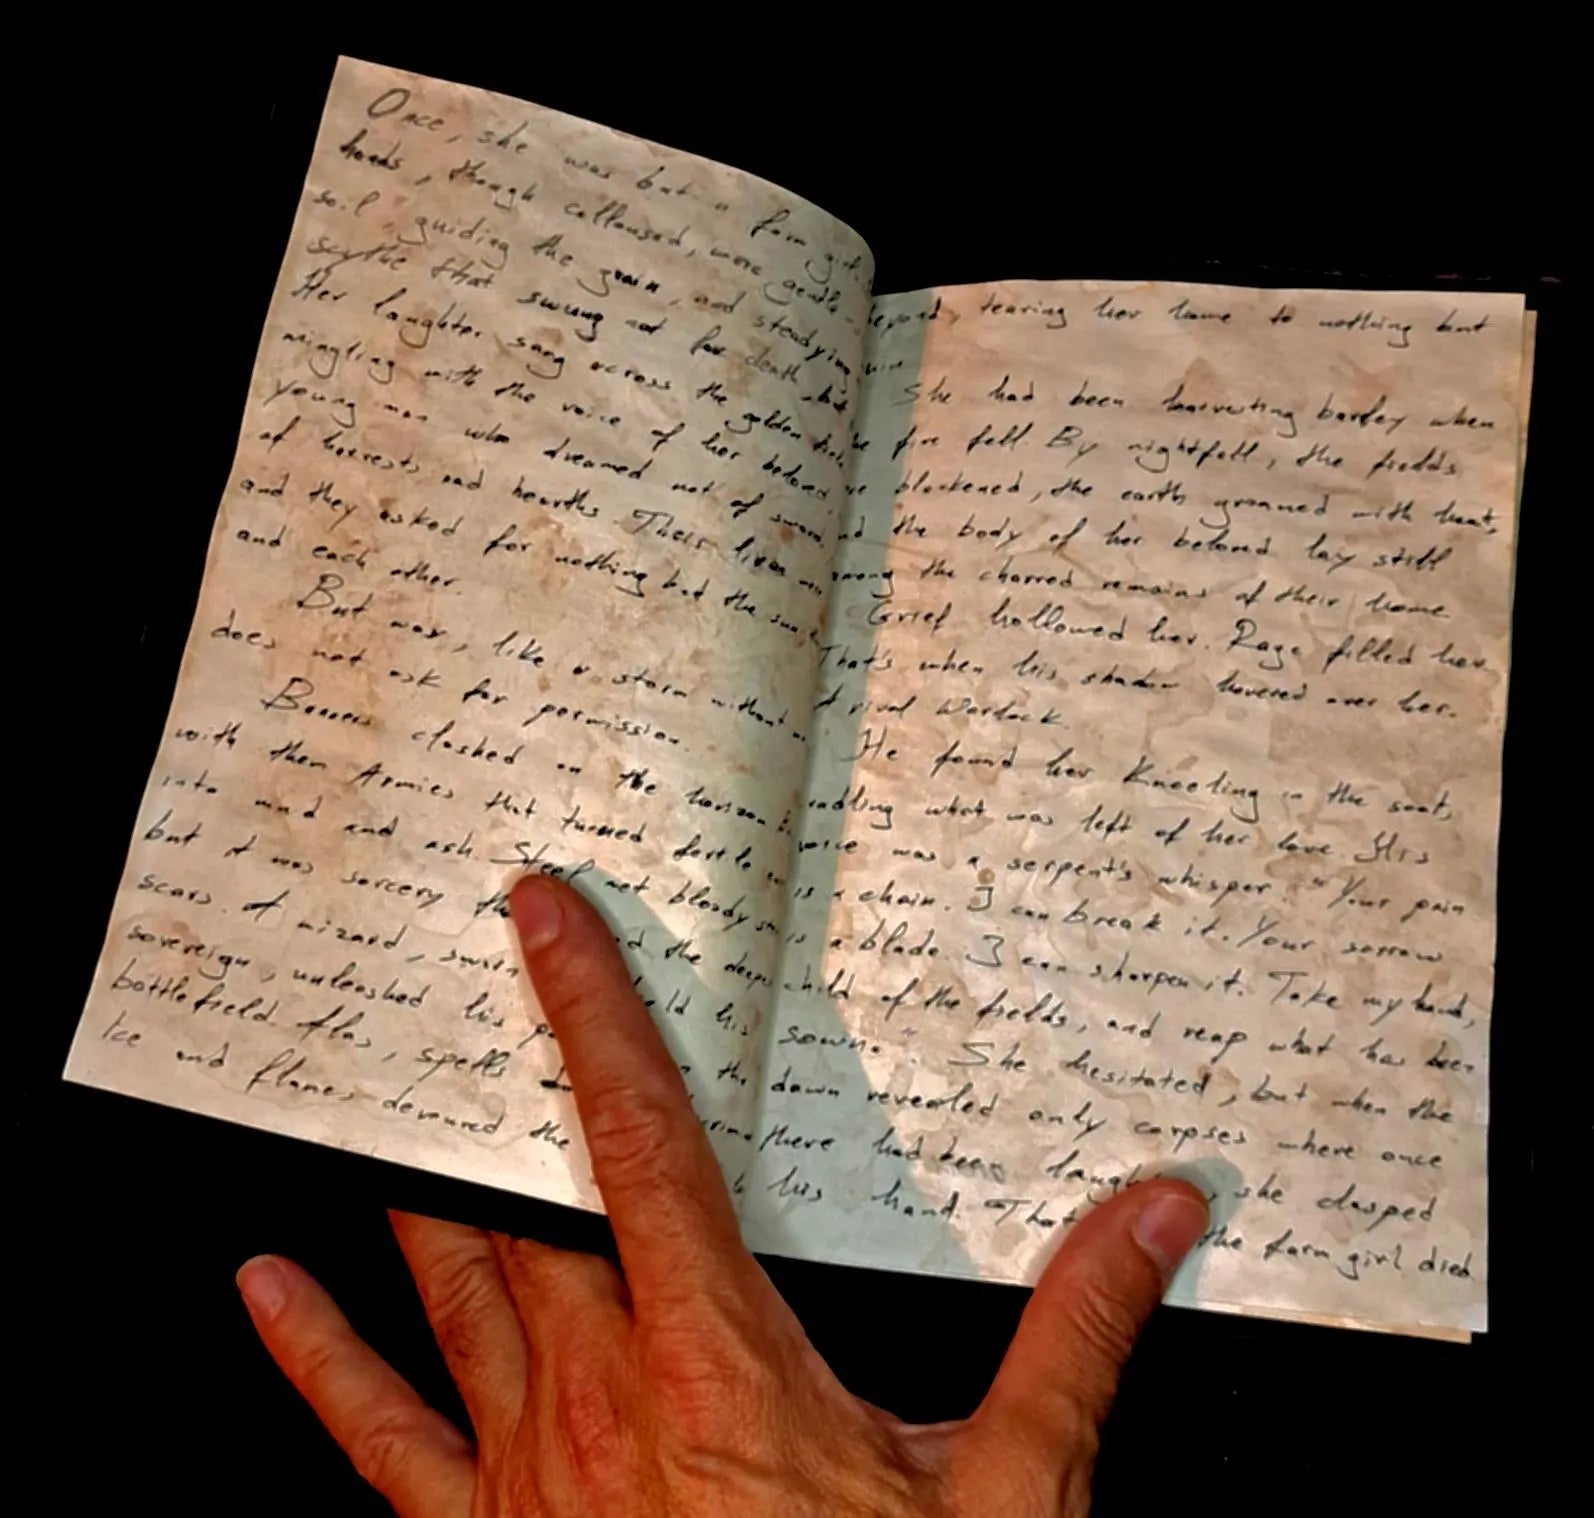 Once, she was but a farm girl.
hands, though calloused, were gentle
soil, guiding the grain, and steadying
scythe that swung not for death, but
Her laughter sang across the golden
mingling with the voice of her beloved,
young man who dreamed not of swords,
of harvests and hearths. Their lives were
and they asked for nothing but the sun,
and each other.
But war, like a storm without
does not ask for permission.
Banners clashed on the horizon
with them Armies that turned fertile
into mud and ash. Steel met bloody
but it was sorcery the
scars. A wizard, sworn the deepest
sovereign, unleashed his his
battlefield. flas, spells the
Ice and flames devoured the
beyond, tearing her home to nothing but
ruin
She had been harvesting barley when
the fire fell. By nightfall, the fields
blackened, the earth groaned with heat,
and the body of her beloved lay still
among the charred remains of their home
Grief hollowed her. Rage filled her
That's when his shadow hovered over her.
A rival Warlock.
He found her Kneeling in the soot,
cradling what was left of her love. His
voice was a serpent's whisper. "Your pain
is a chain. I can break it. Your sorrow
is a blade. I can sharpen it. Take my hand,
child of the fields, and reap what has been
sown.". She hesitated, but when the
dawn revealed only corpses where once
there had been she clasped
his hand. the farm girl died